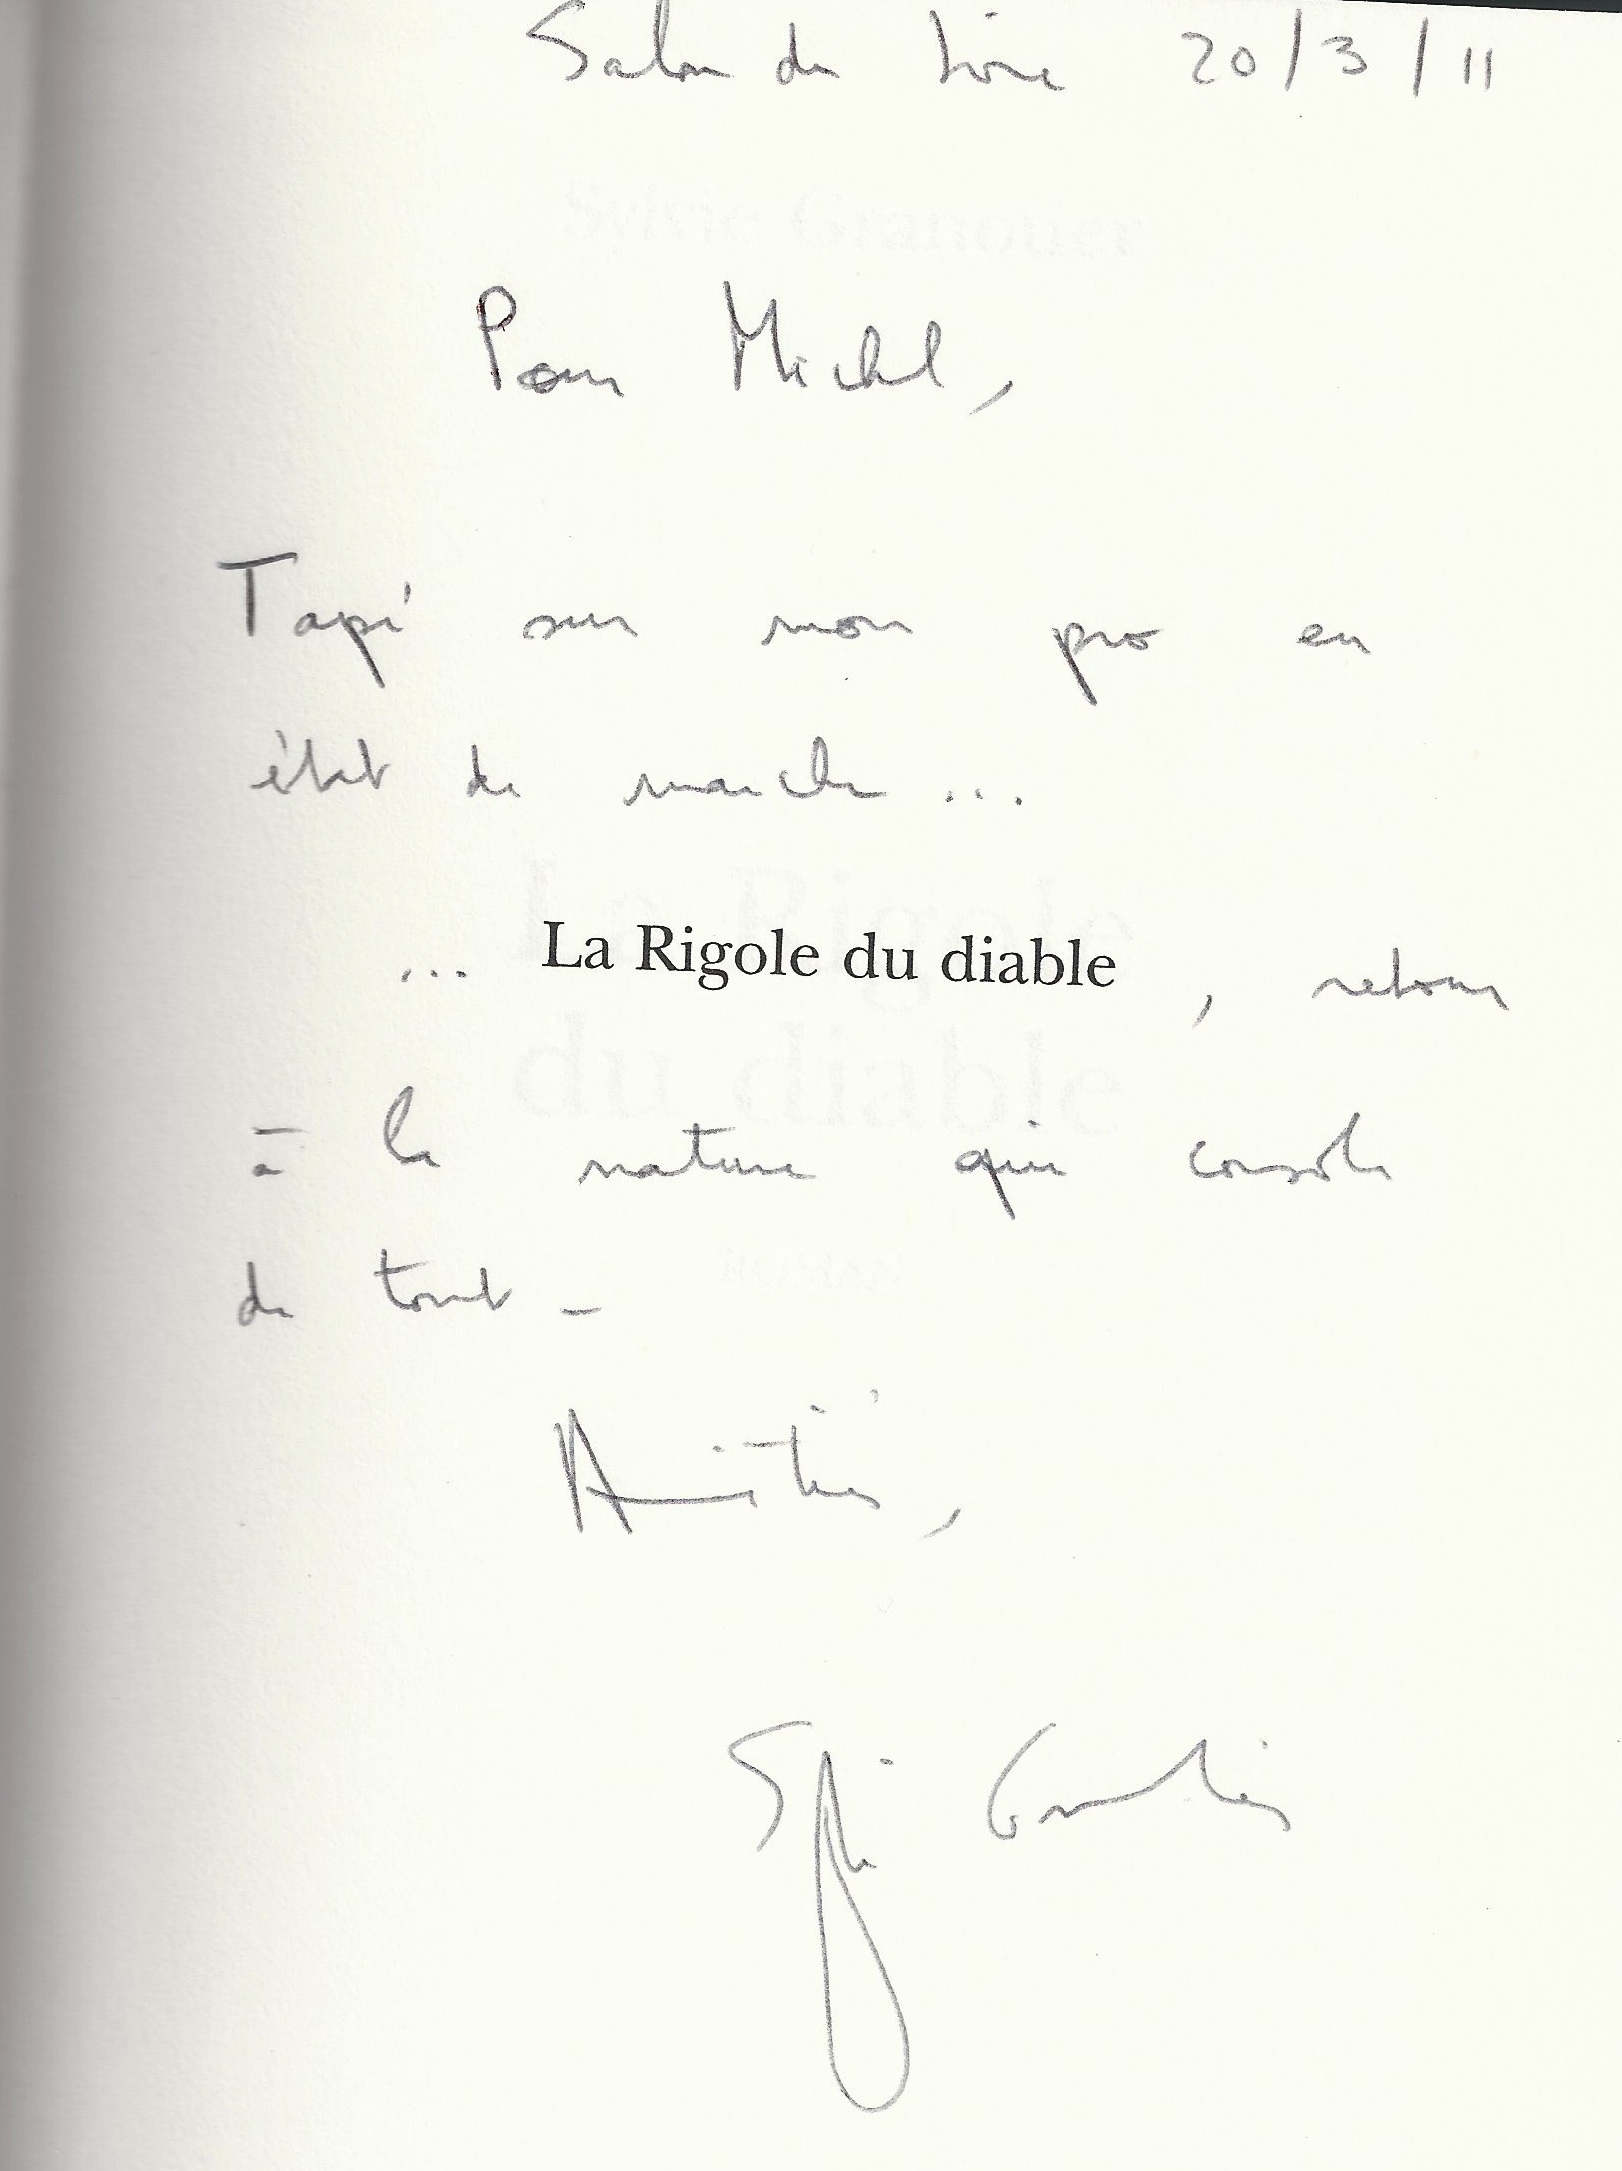 Salon du Livre 20/3/11
Sylvie Granotier
Pour Michel,
Tapé sur mon pro en
état de marche...
... La Rigole du diable, retour
à la nature qui console
de tout –
Amitiés,
Sylvie Granotier